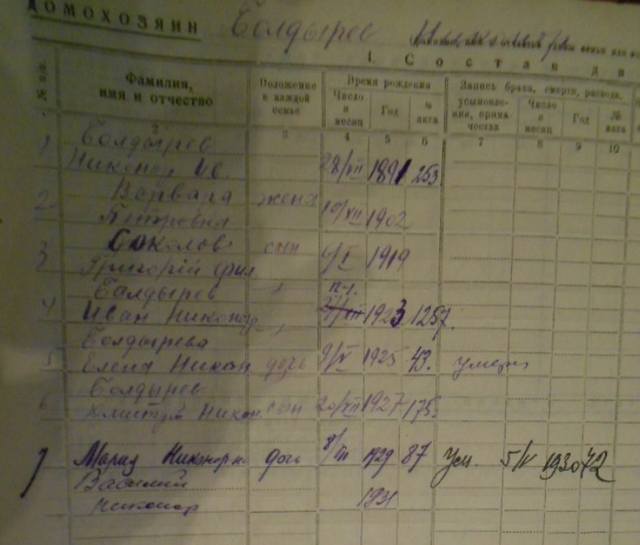 ДОМОХОЗЯИН Болдырев
I. Состав
№ п.п.
Фамилия, имя и отчество
Положение в каждой семье
Время рождения
Число и месяц
Год
№ акта
Запись брака, смерти, развода,
усыновления, примачества
Число и месяц
Год
№ акта
2 3 4 5 6 7 8 9 10
1 Болдырев
Никонор Ив. 28/XII 1891 253
2 Варвара жена
Петровна 10/XII 1902
3 Соколов сын
Григорій Фил 1919
4 Болдырев
Иван Никонор 1923 1257.
Болдырева
5 Елена Никан дочь 9/V 1925 43. умерла
Болдырев
6 Никон сын 20/XII 1927 175.
7 Мария Никонор дочь 8/III 1929 87 Ум. 5/V 1930 72
Василий
Никонор 1931